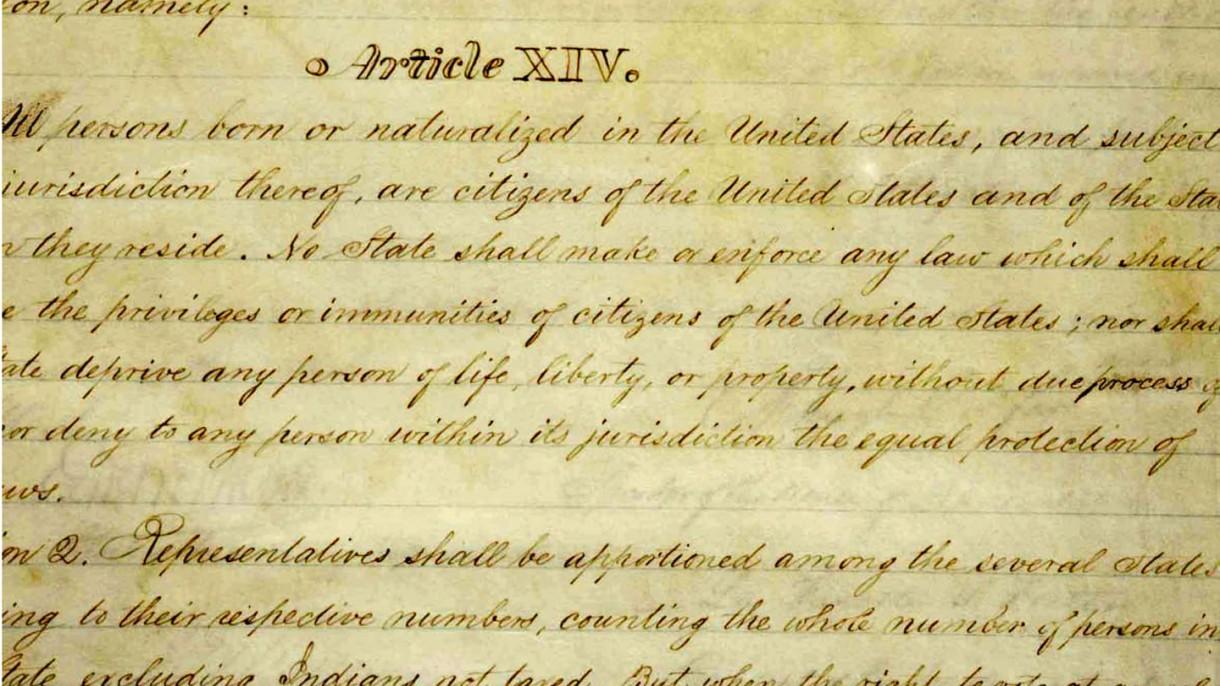 on, namely:
Article XIV.
All persons born or naturalized in the United States, and subject
jurisdiction thereof, are citizens of the United States and of the Sta
n they reside. No State shall make or enforce any law which shall
e the privileges or immunities of citizens of the United States; nor shall
ate deprive any person of life, liberty, or property, without due process of
or deny to any person within its jurisdiction the equal protection of
aws.
on 2. Representatives shall be apportioned among the several States
ing to their respective numbers, counting the whole number of persons in
tate excluding Indians not taxed. But when the right to vote at